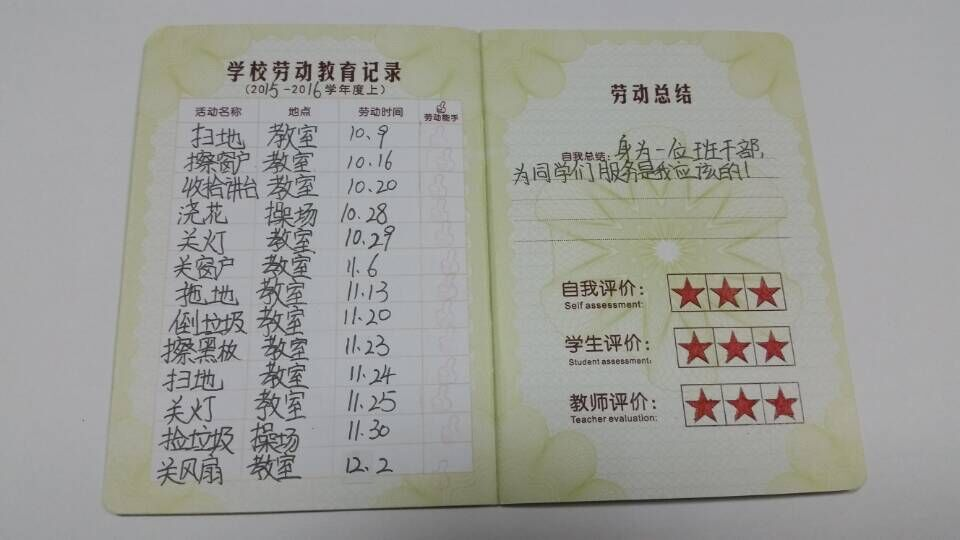 学校劳动教育记录
(2015-2016学年度上)
活动名称 地点 劳动时间 劳动能手
扫地 教室 10.9
擦窗户 教室 10.16
收拾讲台 教室 10.20
浇花 操场 10.28
关灯 教室 10.29
关窗户 教室 11.6
拖地 教室 11.13
倒垃圾 教室 11.20
擦黑板 教室 11.23
扫地 教室 11.24
关灯 教室 11.25
捡垃圾 操场 11.30
关风扇 教室 12.2
劳动总结
自我总结：身为一位班干部，
为同学们服务是我应该的！
自我评价：
Self assessment:
学生评价：
Student assessment:
教师评价：
Teacher evaluation: